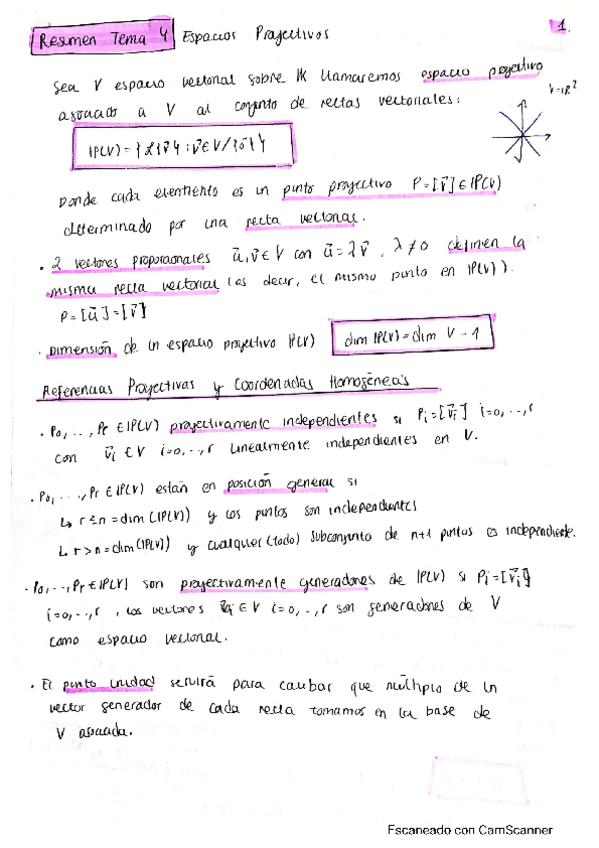 Resumen Tema 4 Espacios Proyectivos
1.
Sea V espacio vectorial sobre IK llamaremos espacio proyectivo
asociado a V al conjunto de rectas vectoriales:
V=IR²
IP(V) = { L{v⃗} : v⃗ ∈ V/{0⃗} }
Donde cada elemento es un punto proyectivo P=[v⃗] ∈ IP(V)
determinado por una recta vectorial.
· 2 vectores proporcionales u⃗,v⃗ ∈ V con u⃗ = λv⃗, λ≠0 definen la
misma recta vectorial (es decir, el mismo punto en IP(V)).
P=[u⃗]=[v⃗]
· Dimensión de un espacio proyectivo IP(V) dim IP(V) = dim V - 1
Referencias Proyectivas y Coordenadas Homogéneas
· P0,..,Pr ∈ IP(V) proyectivamente independientes si Pi=[v⃗i] i=0,..,r
con v⃗i ∈ V i=0,..,r linealmente independientes en V.
· P0,..., Pr ∈ IP(V) están en posición general si
↳ r ≤ n = dim (IP(V)) y los puntos son independientes
↳ r > n = dim(IP(V)) y cualquier (todo) subconjunto de n+1 puntos es independiente.
· P0,..,Pr ∈ IP(V) son proyectivamente generadores de IP(V) si Pi=[v⃗i]
i=0,..,r , los vectores v⃗i ∈ V i=0,..,r son generadores de V
como espacio vectorial.
· El punto unidad servirá para que múltiplo de un
vector generador de cada recta tomamos en la base de
V asociada.
Escaneado con CamScanner